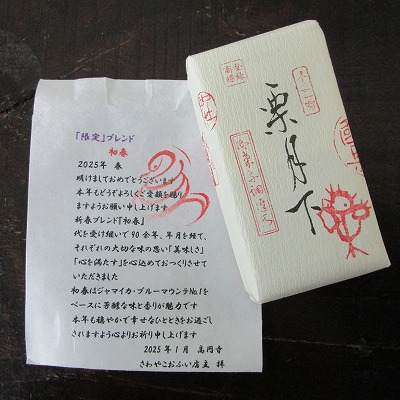 「限定」ブレンド
初春
2025年 春
明けましておめでとうございます
本年もどうぞよろしくご愛顧を賜り
ますようお願い申し上げます
新春ブレンド「初春」
代を受け継いで90余年、年月を経て、
それぞれの大切な味の思い「美味しさ」
「心を満たす」を心込めておつくりさせて
いただきました
初春はジャマイカ・ブルーマウンテンNo.1を
ベースに芳醇な味と香りが魅力です
本年も穏やかで幸せなひとときをお過ごし
されますよう心よりお祈り申し上げます
2025年1月 高円寺
さわやこおふぃ店主 拝
栗月下